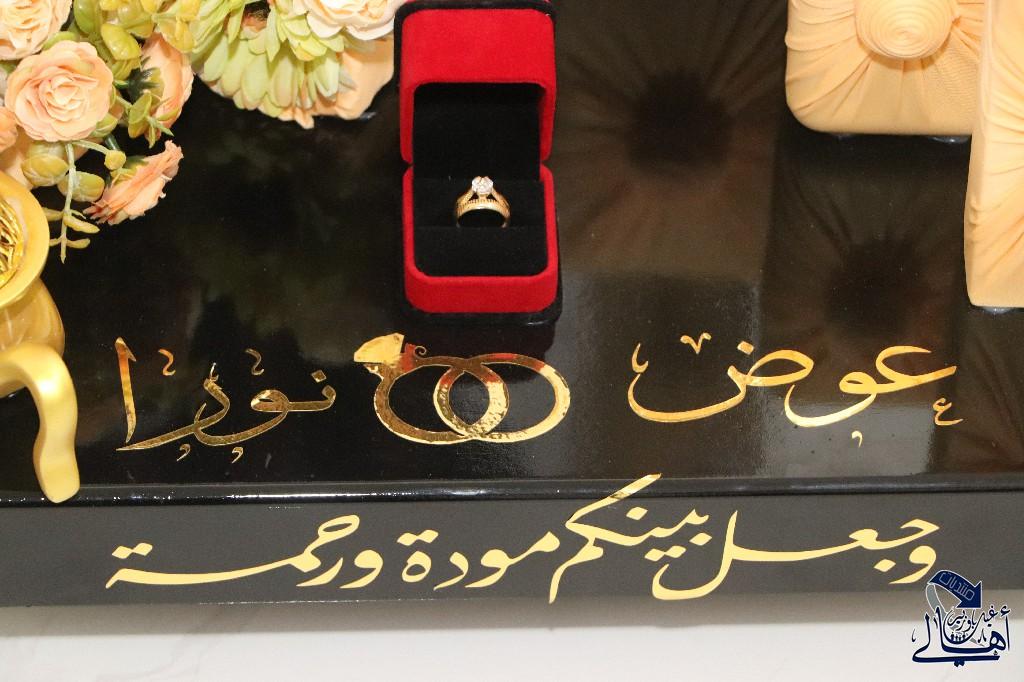 عوض نورا
وجعل بينكم مودة ورحمة
منتديات
أهالي